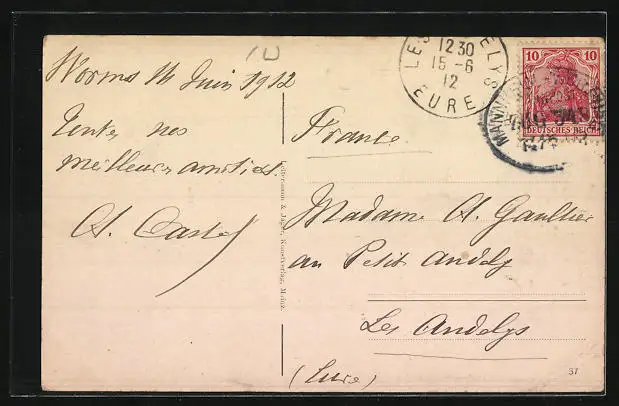 10
Worms 14 Juin 1912
Toutes nos
meilleures amitiés.
A. Castel
LES ANDELYS
12 30
15 - 6
12
EURE
10 10
DEUTSCHES REICH
MANNHEIM
France
Madame A. Gaultier
au Petit Andely
Les Andelys
(Eure)
& Jäger, Kunstverlag, Mainz
37